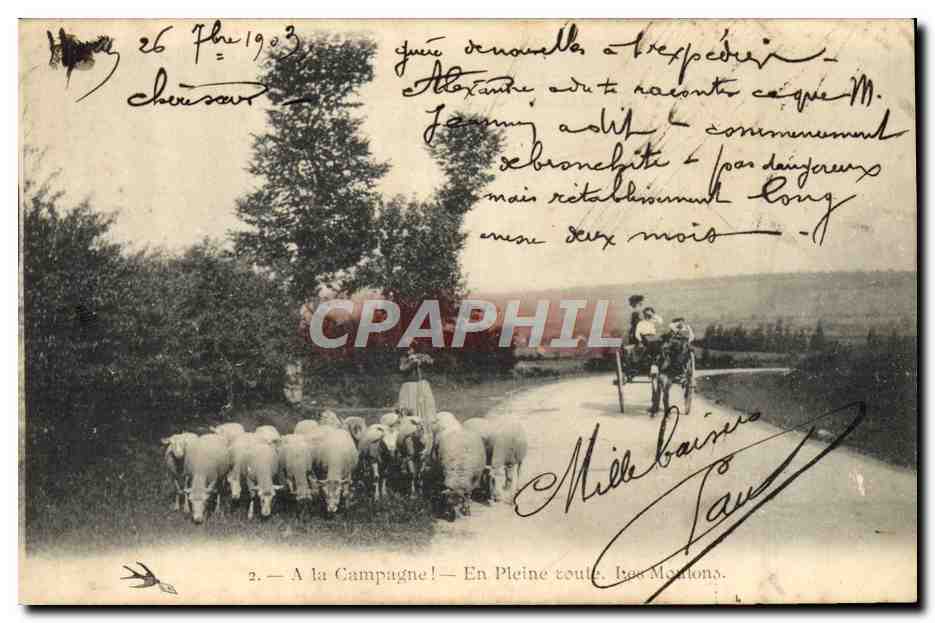 26 7bre 1903
chère sœur
guère de nouvelles à t'expédier -
Alexandre a du te raconter ce que M.
Jeannin a dit - commencement
de bronchite - pas dangereux
mais rétablissement long
deux mois - .
CPAPHIL
Mille baisers
Paul
2. - A la Campagne! - En Pleine route. Les Moutons.